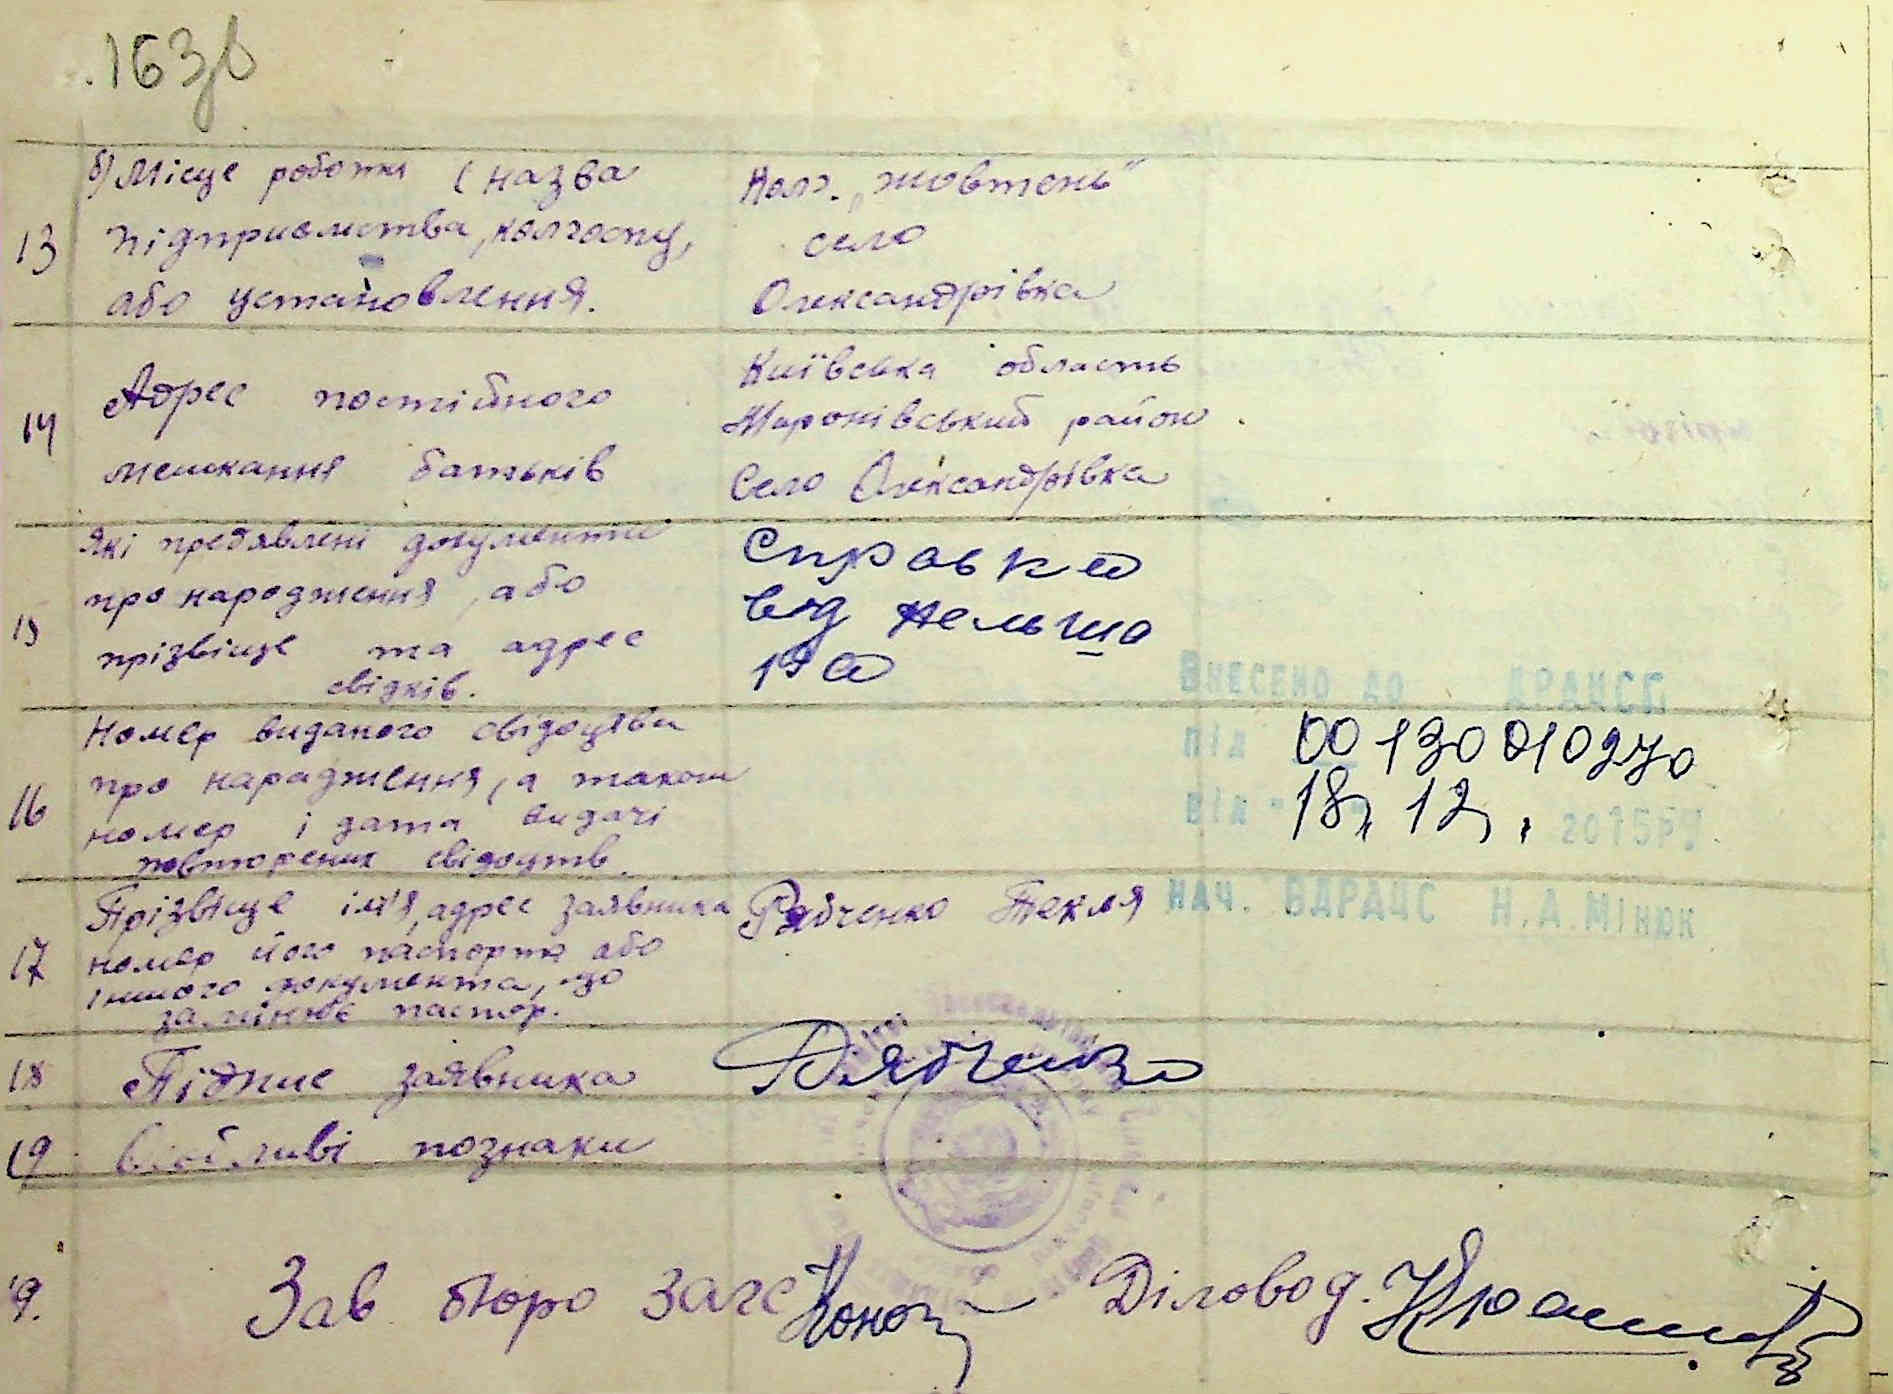 163зв
13 б) Місце роботи (назва
підприємства, колгоспу,
або установлення.
Колг. „Жовтень"
село
Олександрівка
14 Адрес постійного
мешкання батьків
Київська область
Миронівський район
Село Олександрівка
15 Які предявлені документи
про народження, або
прізвище та адрес
свідків.
Справка
від
16 Номер виданого свідоцтва
про народження, а також
номер і дата видачі
повторених свідоцтв.
Внесено до ДРАЦСГ
під 00130010270
від " 18, 12, 2015р
нач. ВДРАЦС Н.А.Мінюк
17 Прізвище ім'я, адрес заявника
номер його паспорта або
іншого документа, що
замінює паспор.
Рябченко Текля
18 Підпис заявника
Рябченко
19 познаки
19. Зав бюро загс Діловод.